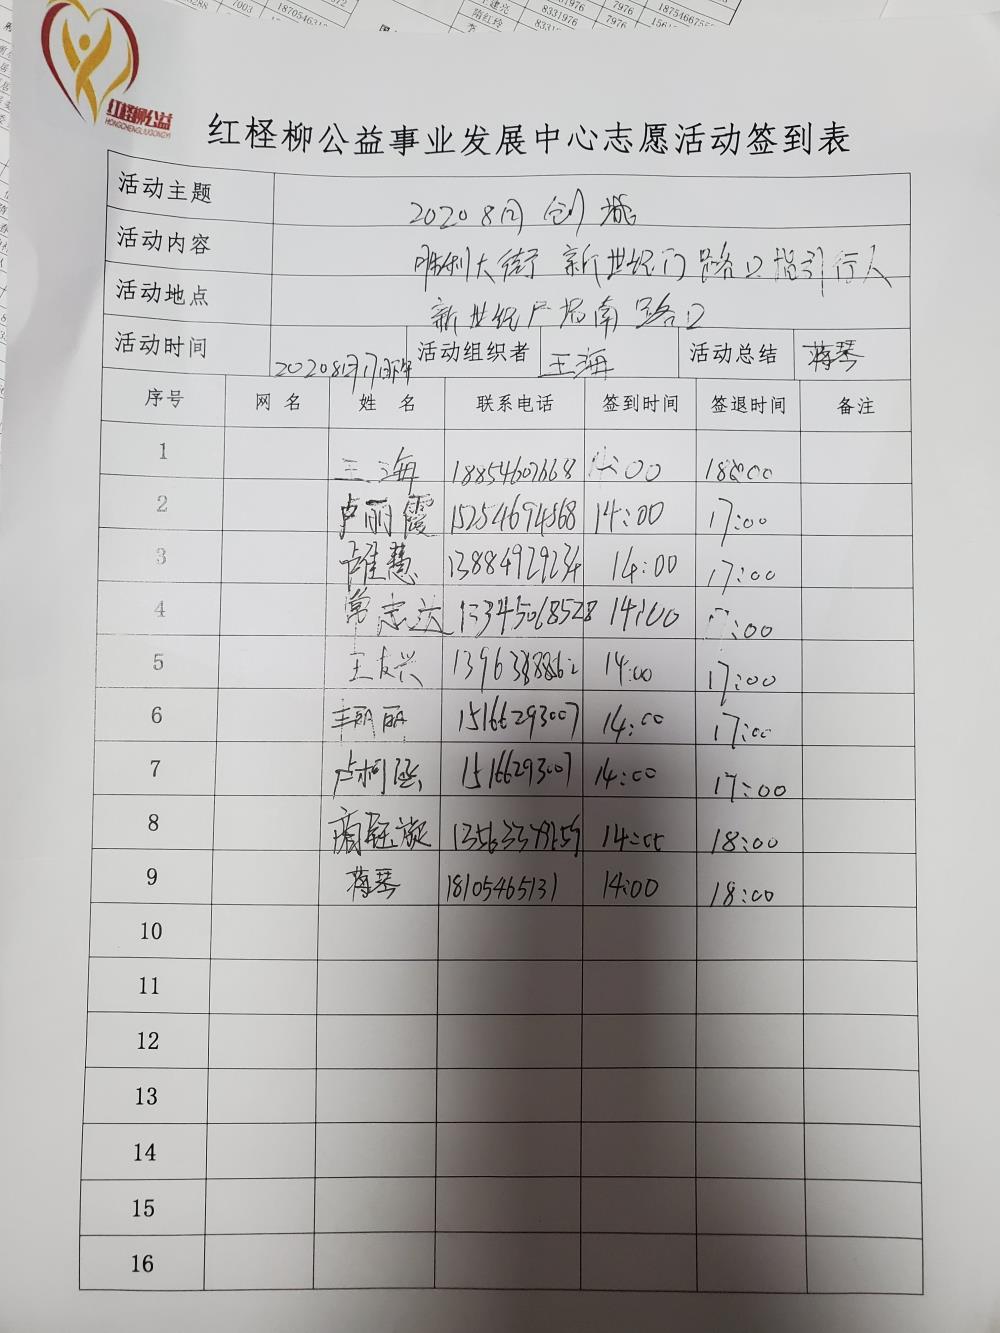 红柽柳公益
HONGCHENGLIUGONGYI
红柽柳公益事业发展中心志愿活动签到表
活动主题 2020 8月 创城
活动内容 大街 新世纪门 路口指引行人
活动地点 新世纪广场南路口
活动时间 2020 8月17日下午 活动组织者 王海 活动总结 蒋琴
序号 网名 姓名 联系电话 签到时间 签退时间 备注
1 王海 14:00 18:00
2 卢丽霞 15254694568 14:00 17:00
3 13884929234 14:00 17:00
4 常志达 13345068528 14:00 17:00
5 王友兴 14:00 17:00
6 15166293007 14:00 17:00
7 卢柯涵 15166293007 14:00 17:00
8 商钰旋 14:00 18:00
9 蒋琴 18105465131 14:00 18:00
10
11
12
13
14
15
16